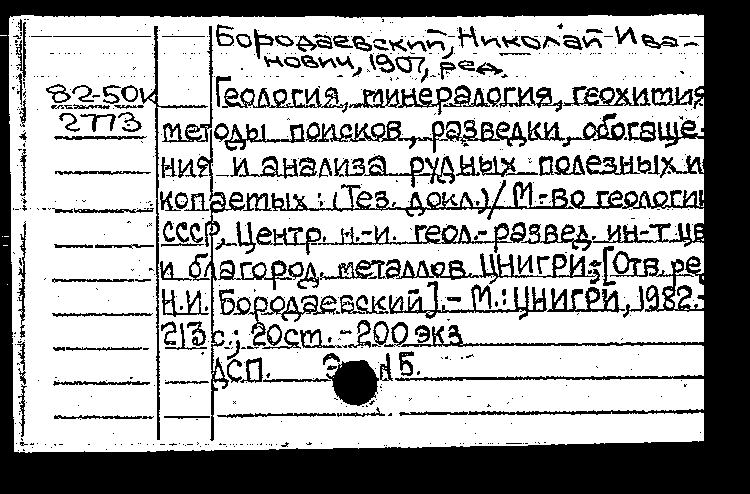 Бородаевский, Николай Ива-
нович, 1907, ред.
82-50к
2773
Геология, минералогия, геохимия
методы поисков, разведки, обогаще-
ния и анализа рудных полезных и
копаемых : (Тез. докл.) / М-во геологии
СССР, Центр. н.-и. геол.-развед. ин-т цв
и благород. металлов ЦНИГРИ; [Отв. ре
Н.И. Бородаевский]. - М. : ЦНИГРИ, 1982. -
213 с.; 20 см. - 200 экз
ДСП. 15.